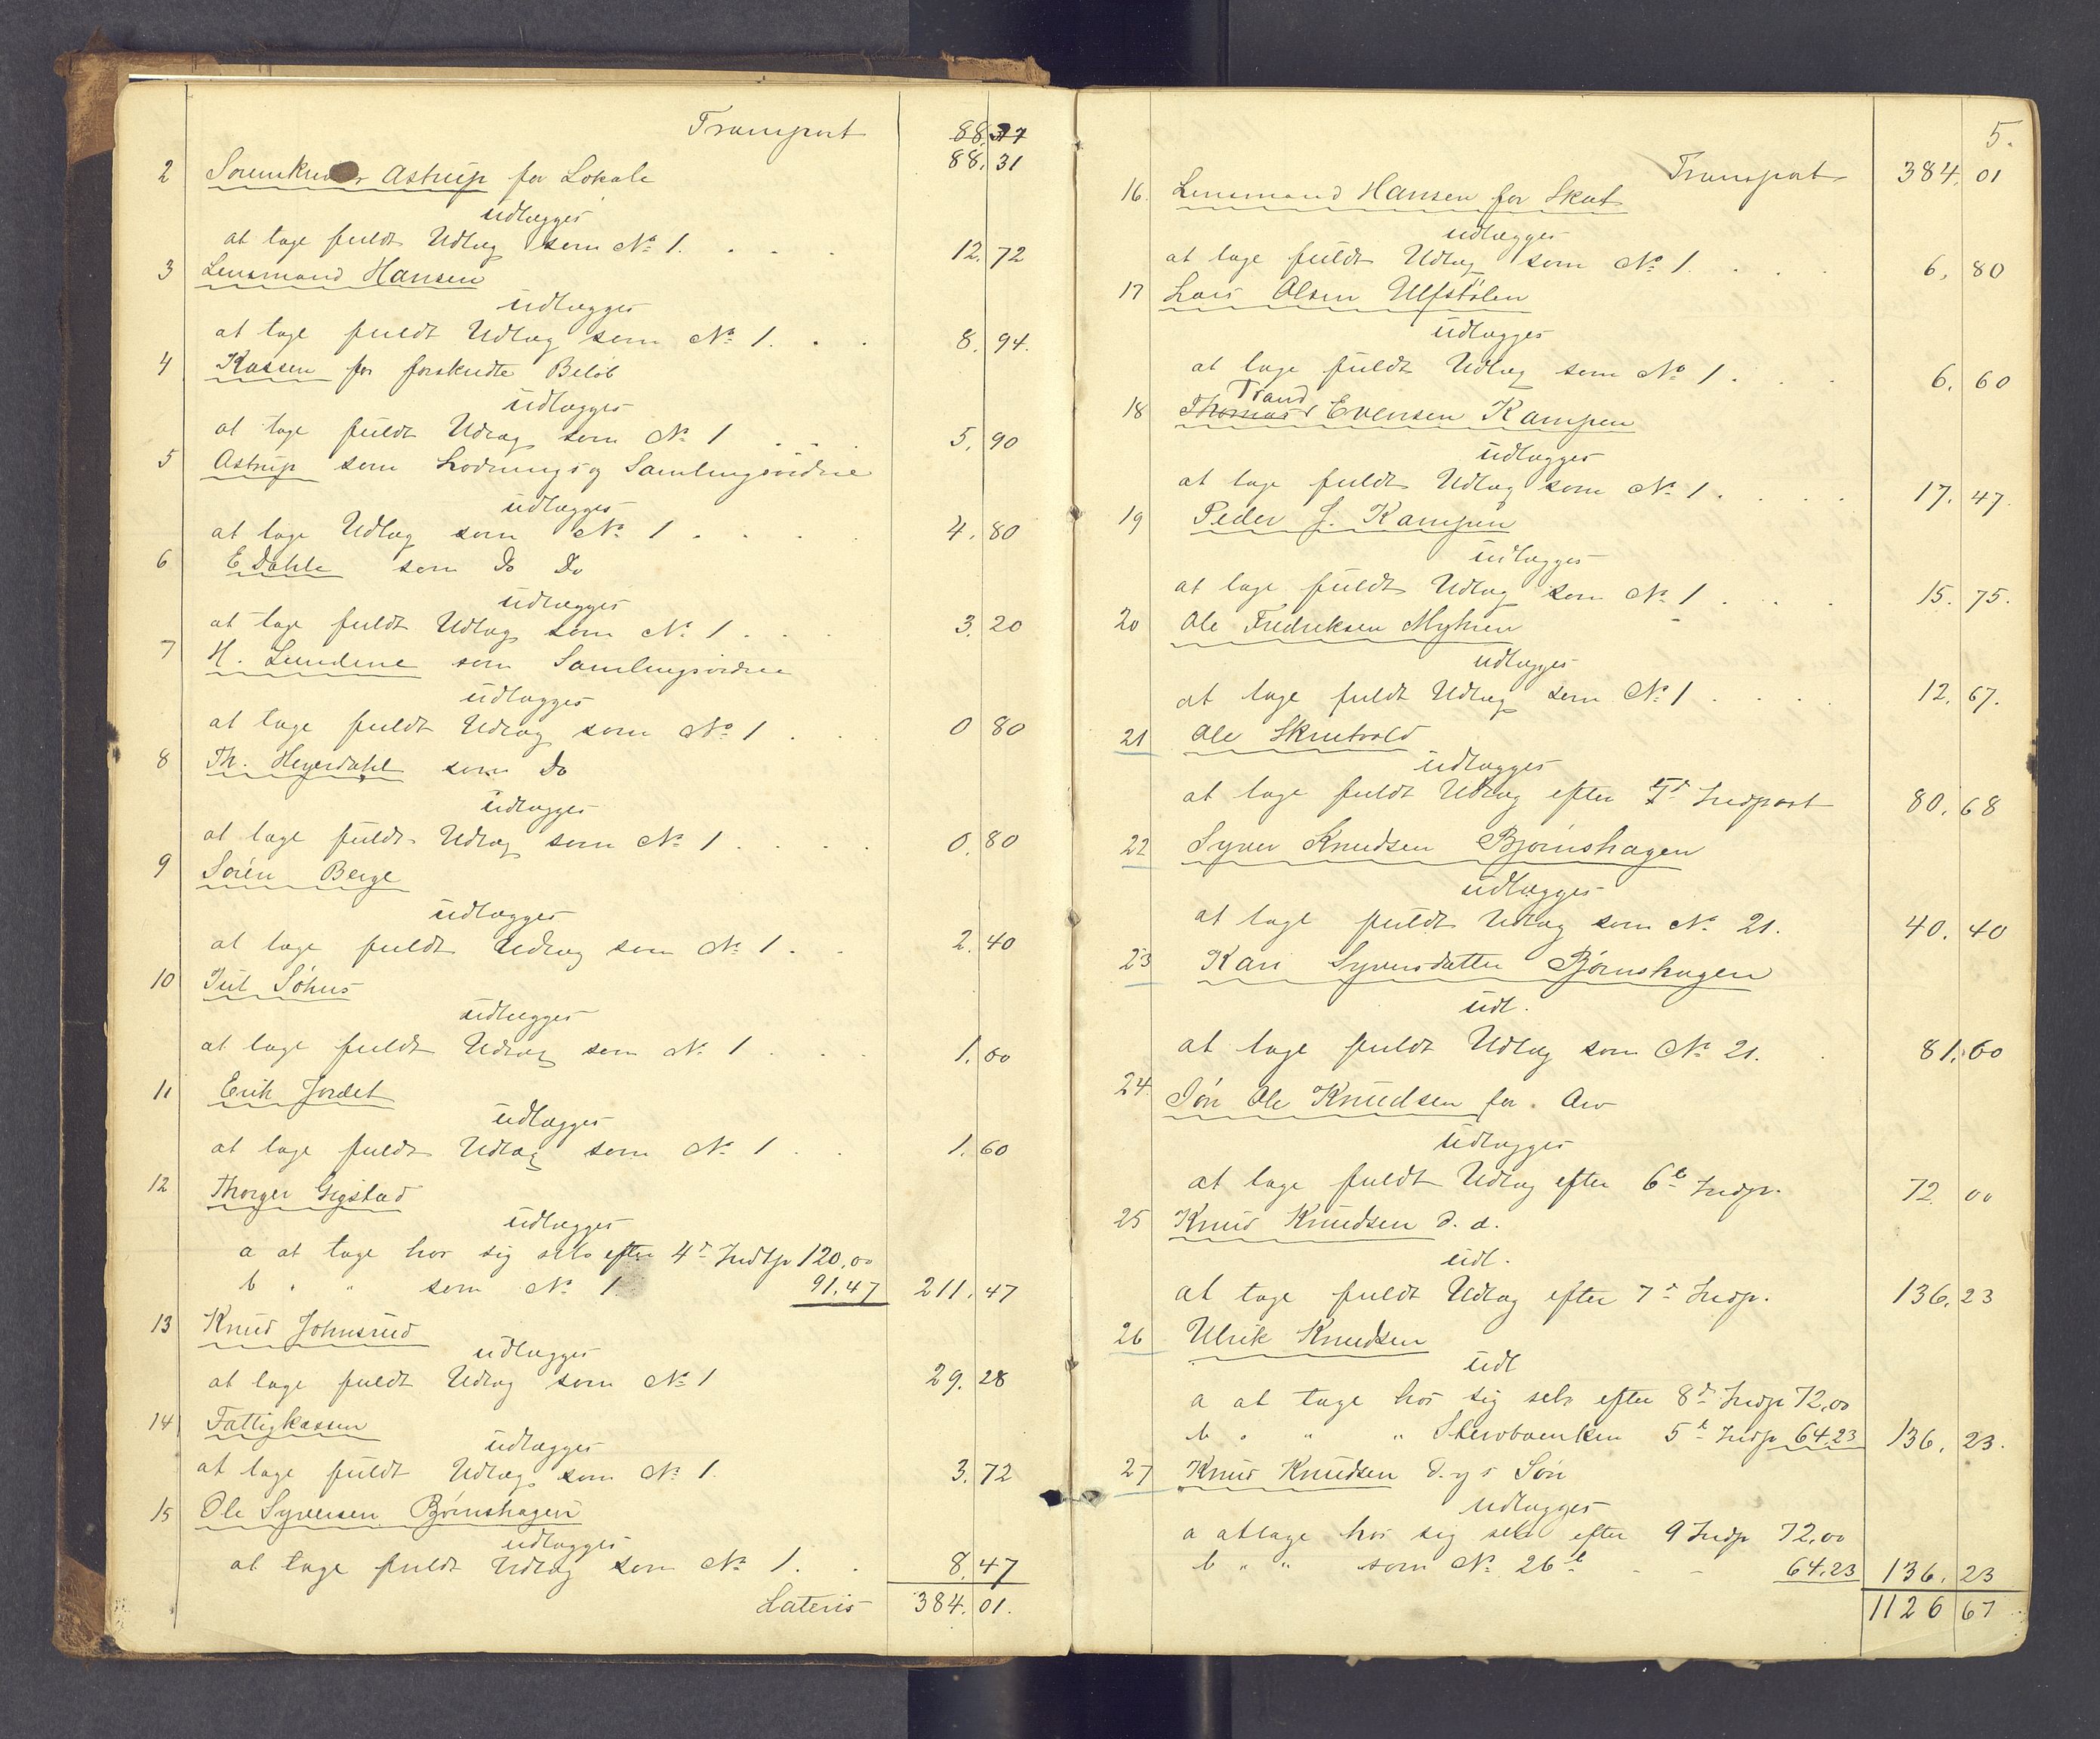 Transport 88.37
88.31
2 Astrup for Lokale
udlægges
at tage fuldt Udlæg som No 1. . . . 12.72
3 Lensmand Hansen
udlægges
at tage fuldt Udlæg som No 1. . . 8.94.
4 Kassen for forskudte Beløb
udlægges
at tage fuldt Udlæg som No 1 . . . 5.90
5 Astrup som Lodnings og Samlingsvidne
udlægges
at tage Udlæg som No 1 . . . . 4.80
6 E Dahle som Do Do
udlægges
at tage fuldt Udlæg som No 1 . . . 3.20
7 H. Lundene som Samlingsvidne
udlægges
at tage fuldt Udlæg som No 1 . . . 0 80
8 Th. Heyerdahl som Do
udlægges
at tage fuldt Udlæg som No 1 . . . . 0.80
9 Sørén Berge
udlægges
at tage fuldt Udlæg som No 1 . . 2.40
10 Jul Søhus
udlægges
at tage fuldt Udlæg som No 1 . . . 1.60
11 Erik Jordet
udlægges
at tage fuldt Udlæg som No 1 . . 1.60
12 Thorger Gigstad
udlægges
a at tage hos sig selv efter 4d Indtp 120,00
b " " som No 1 91.47 211.47
13 Knud Johnsrud
udlægges
at tage fuldt Udlæg som No 1 29.28
14 Fattigkassen
udlægges
at tage fuldt Udlæg som No 1. 3.72
15 Ole Syversen Bjørnshagen
udlægges
at tage fuldt Udlæg som No 1. . 8.47
Lateris 384.01.
5.
Transport 384.01
16. Lensmand Hansen for Skat
udlægges
at tage fuldt Udlæg som No 1. . . . 6.80
17 Lars Olsen Ulfstølen
udlægges
at tage fuldt Udlæg som No 1. . . 6.60
Trand
18 Thomas Evensen Kampen
udlægges
at tage fuldt Udlæg som No 1. . . . 17.47
19 Peder J. Kampen
udlægges
at tage fuldt Udlæg som No 1 . . . 15.75.
20 Ole Fredriksen Myhren
udlægges
at tage fuldt Udlæg som No 1 . . . 12.67.
21 Ole Skrutvold
udlægges
at tage fuldt Udlæg efter Indpost 80.68
22 Syver Knudsen Bjørnshagen
udlægges
at tage fuldt Udlæg som No 21. 40.40
23 Kari Syversdatter Bjørnshagen
udl.
at tage fuldt Udlæg som No 21. . 81.60
24. Søn Ole Knudsen for Arv
udlægges
at tage fuldt Udlæg efter 6te Indp. 72 00
25 Knud Knudsen d. æ.
udl.
at tage fuldt Udlæg efter 7d Indp. 136.23
26 Ulrik Knudsen
udl
a at tage hos sig selv efter 8d Indp 72,00
b " " " Skevbænken 5te Indp 64.23 136.23.
27 Knud Knudsen d.y s Søn
udlægges
a at tage hos sig selv efter 9 Indp 72,00
b " " som No 26 b - - 64,23 136.23
1126 67